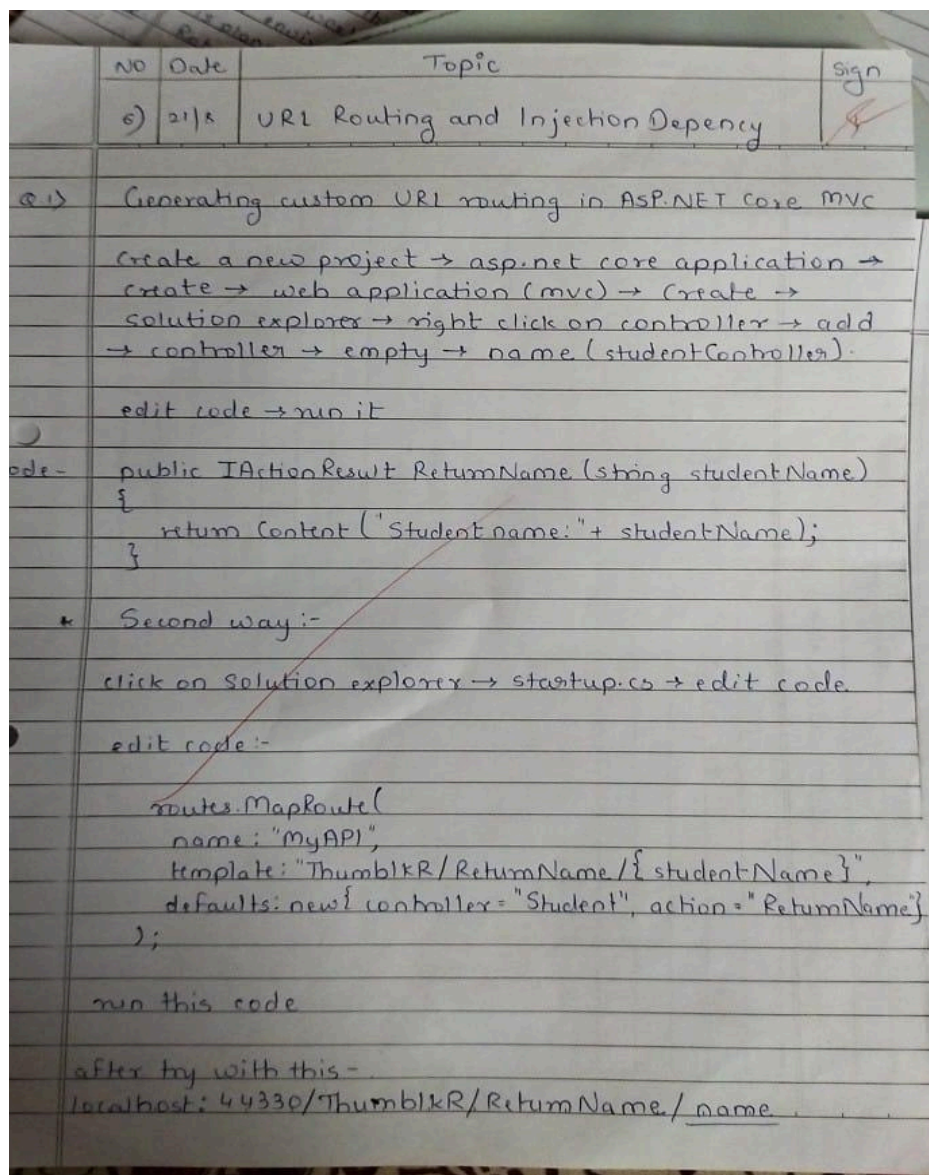 NO Date Topic Sign
6) 21/8 URL Routing and Injection Depency
Q.1) Generating custom URL routing in ASP.NET Core MVC
Create a new project → asp.net core application →
create → web application (mvc) → Create →
solution explorer → right click on controller → add
→ controller → empty → name (studentController).
edit code → run it
ode- public IActionResult ReturnName (string studentName)
{
return Content ("Student name:"+ studentName);
}
* Second way :-
click on solution explorer → startup.cs → edit code
edit code :-
routes.MapRoute(
name: "MyAPI",
template: "ThumblkR/ReturnName/{studentName}",
defaults: new{ controller = "Student", action = "ReturnName"}
);
run this code
after try with this -
localhost: 44330/ThumblkR/ReturnName/name